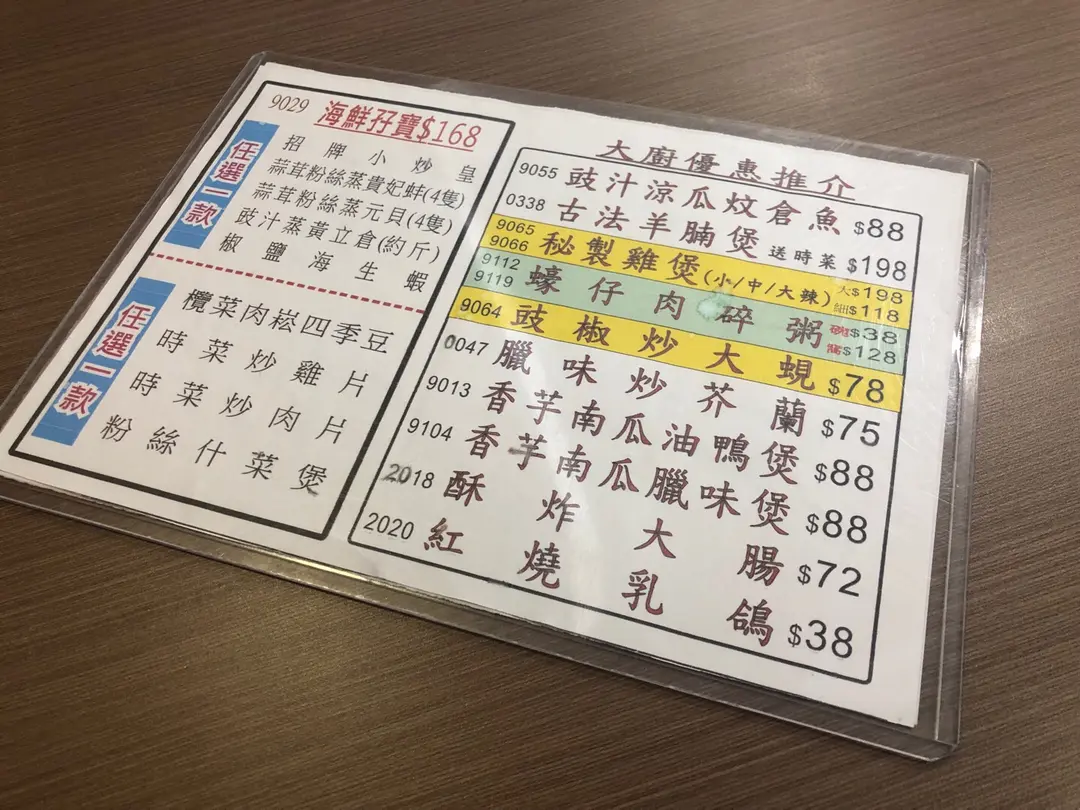 9029 海鮮孖寶$168
任選一款
招牌小炒皇
蒜茸粉絲蒸貴妃蚌(4隻)
蒜茸粉絲蒸元貝(4隻)
豉汁蒸黃立倉(約斤)
椒鹽海生蝦
任選一款
欖菜肉崧四季豆
時菜炒雞片
時菜炒肉片
粉絲什菜煲
大廚優惠推介
9055 豉汁涼瓜炆倉魚 $88
0338 古法羊腩煲 送時菜 $198
9065 9066 秘製雞煲(小/中/大辣) 大$198 細$118
9112 9119 蠔仔肉碎粥 碗$38 窩$128
9064 豉椒炒大蜆 $78
0047 臘味炒芥蘭 $75
9013 香芋南瓜油鴨煲 $88
9104 香芋南瓜臘味煲 $88
2018 酥炸大腸 $72
2020 紅燒乳鴿 $38